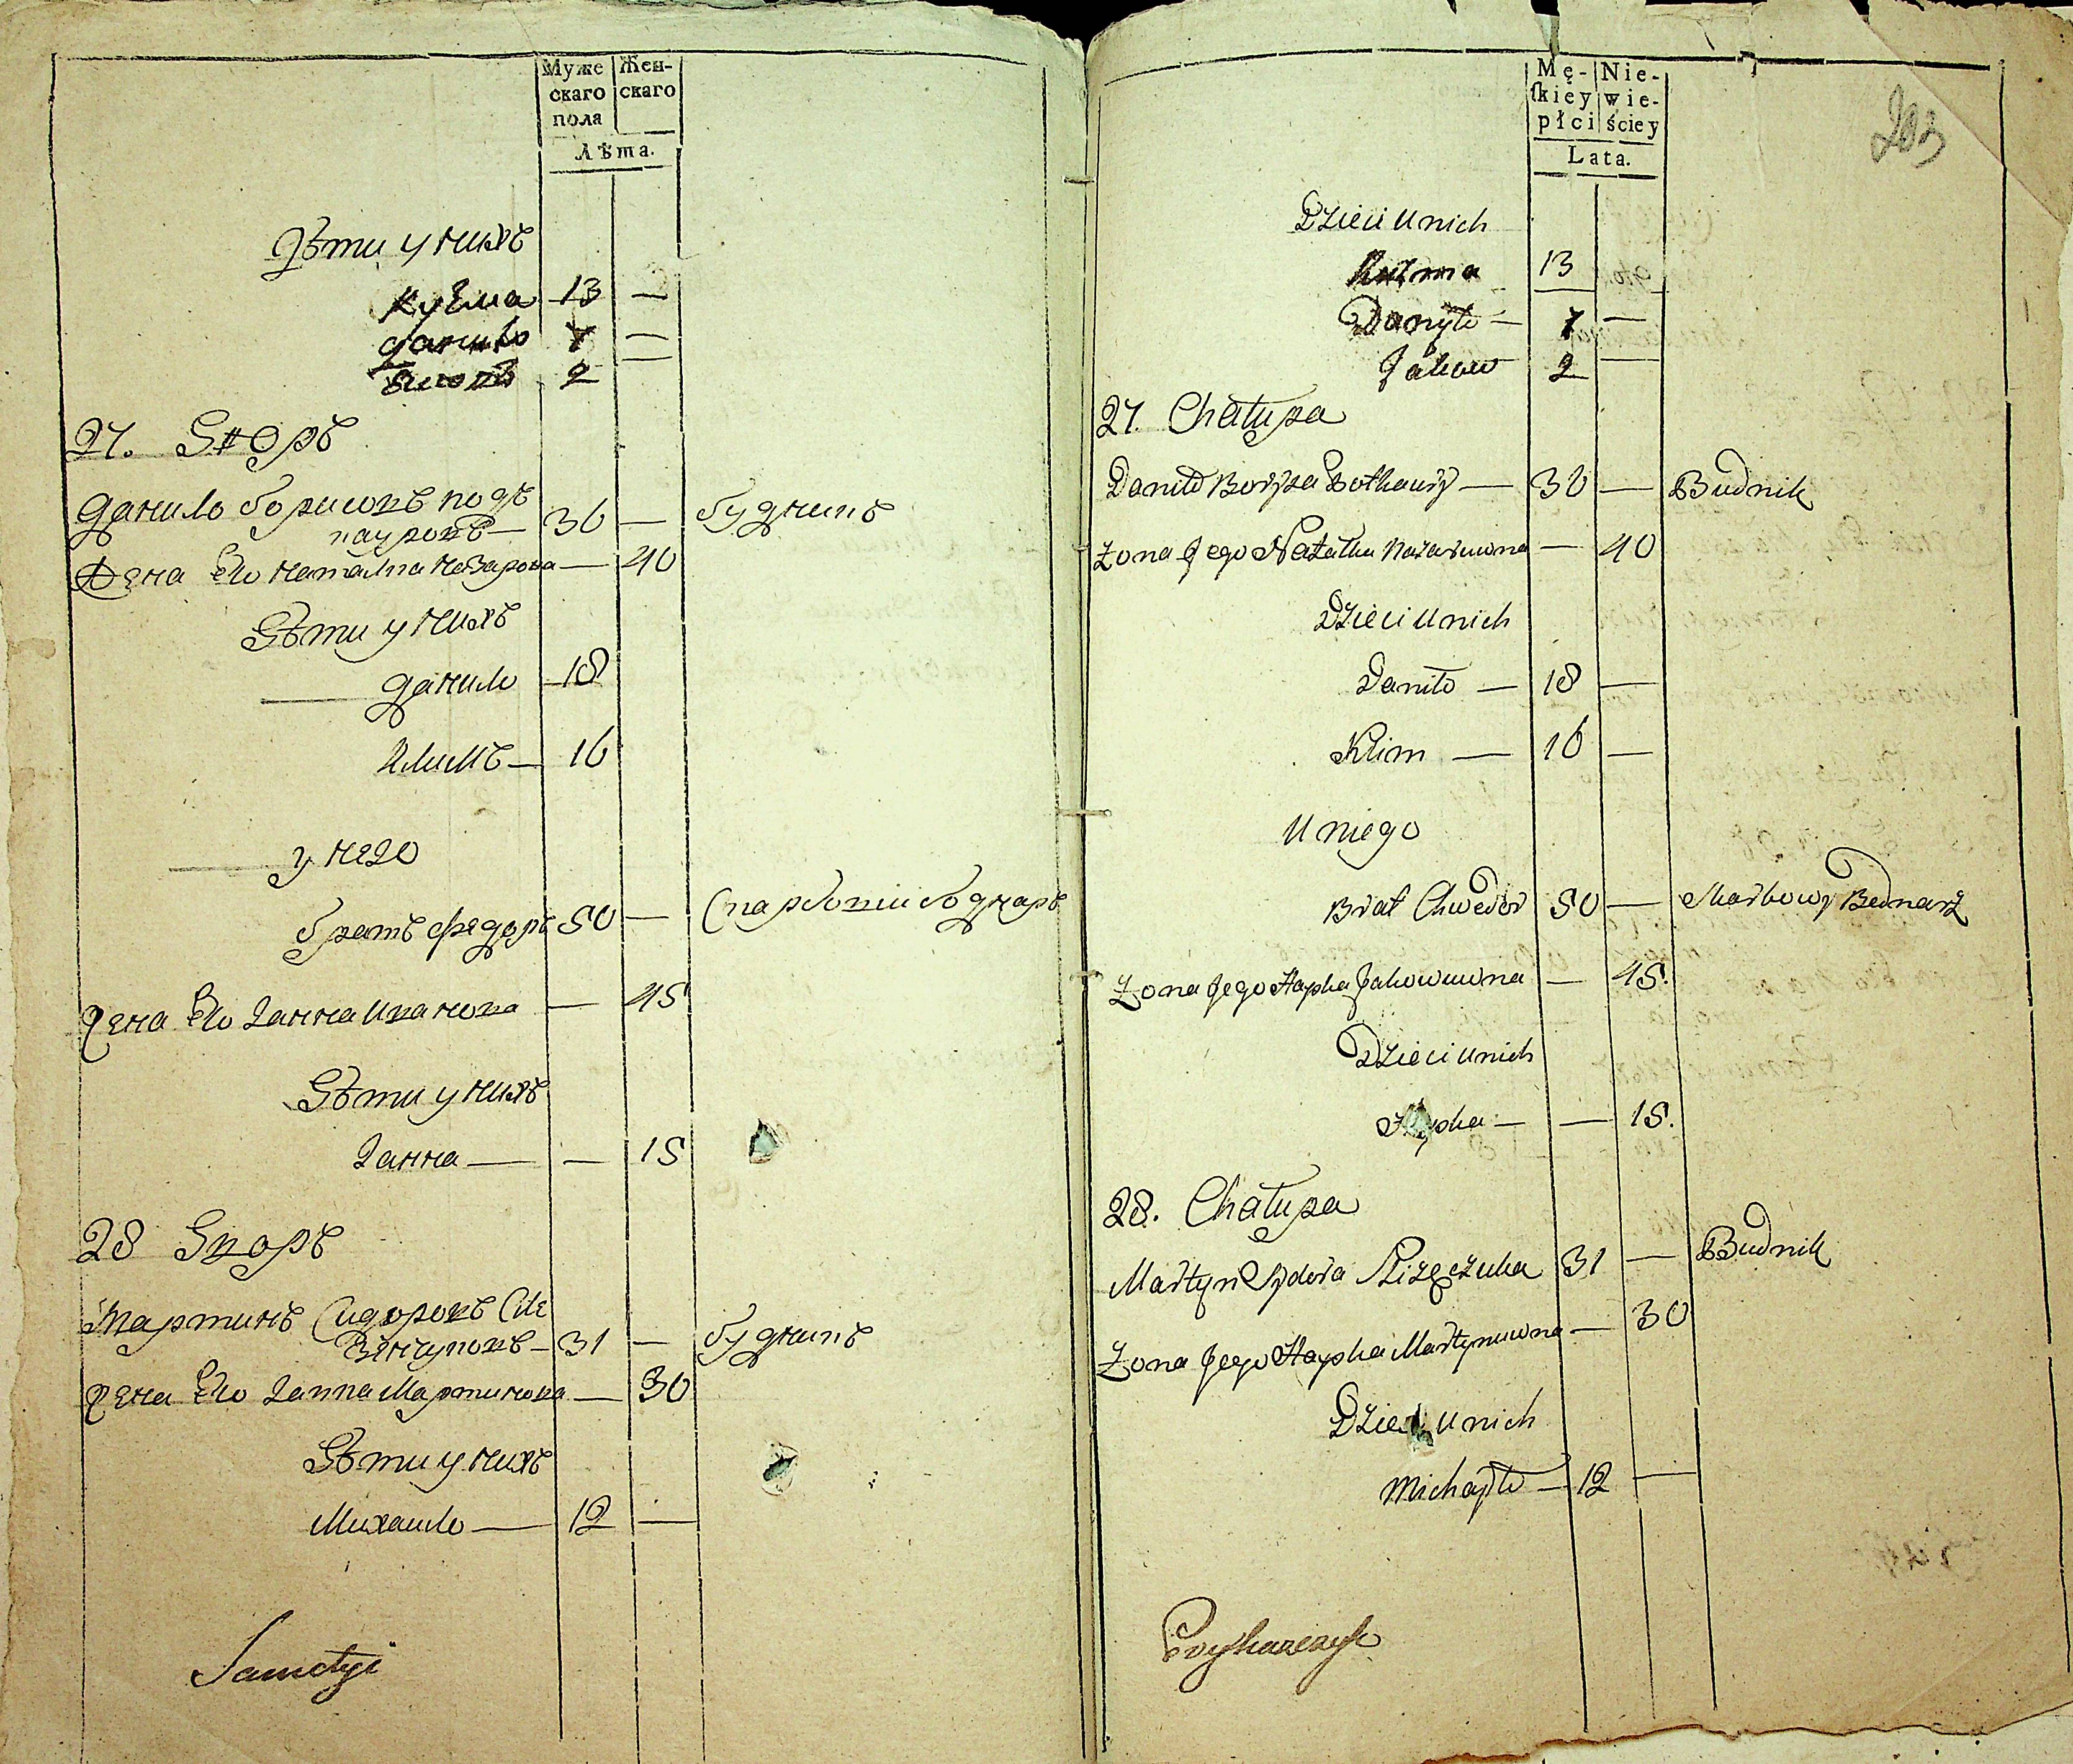 Муже
скаго
пола
Жен-
скаго
Лѣта.
Дѣти у нихъ
Кузма 13 —
Данило 7 —
2
27. Дворъ
Данило Борисовъ подъ
36 — будникъ
Жена Его Наталка Назарова — 40
Дѣти у нихъ
Данило 18
Климъ — 16
у него
братъ Федоръ 50 — Скарбовіи боднаръ
Жена Его Ганна — 45
Дѣти у нихъ
Ганна — — 15
28 Дворъ
Мартинъ Сидоровъ Сле
31 — будникъ
Жена Его Ганна Мартинова — 30
Дѣти у нихъ
Михаило — 12 —
Mę-
ſkiey
płci
Nie-
wie-
ściey
Lata.
203
Dzieci u nich
Kuzma 13
Danyło — 7 —
Jakow 2 —
27. Chałupa
Daniło Borysa — 36 — Budnik
Zona Jego Natałka Nazaruwna — 40
Dzieci u nich
Daniło — 18 —
Klim — 16 —
U niego
Brat Chwedor 50 — Skarbowy Bednarz
Zona Jego Hapka Jakowuwna — 45.
Dzieci u nich
Hapka — — 15.
28. Chałupa
Martyn Sydora 31 — Budnik
Zona Jego Hapka Martynuwna — 30
Dzieci u nich
Michayło — 12 —